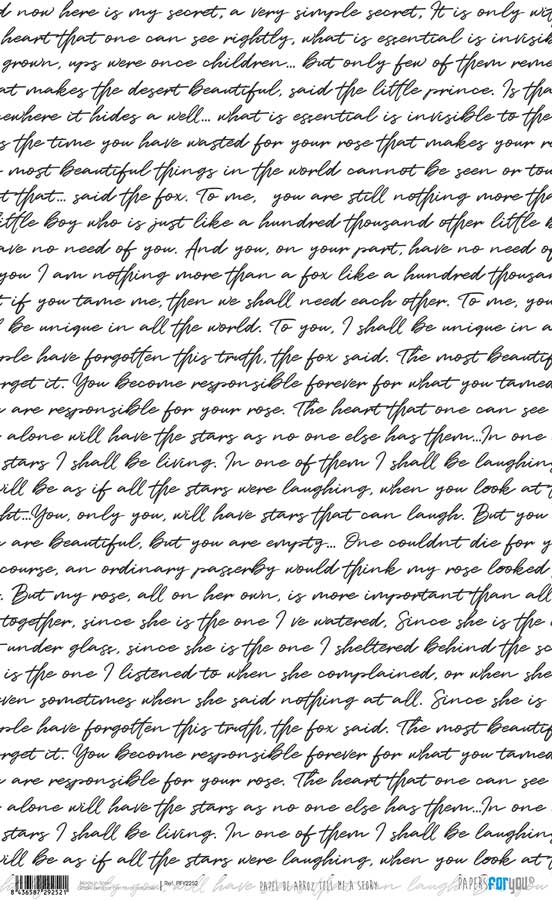 d now here is my secret, a very simple secret, It is only wit
heart that one can see rightly, what is essential is invisib
grown, ups were once children... But only few of them reme
at makes the desert beautiful, said the little prince. Is tha
ewhere it hides a well... what is essential is invisible to the
s the time you have wasted for your rose that makes your r
most beautiful things in the world cannot be seen or tou
t that... said the fox. To me, you are still nothing more tha
little boy who is just like a hundred thousand other little b
ave no need of you. And you, on your part, have no need of
you I am nothing more than a fox like a hundred thousan
t if you tame me, then we shall need each other. To me, you
l be unique in all the world. To you, I shall be unique in a
ple have forgotten this truth, the fox said. The most beautif
rget it. You become responsible forever for what you tamed
are responsible for your rose. The heart that one can see
alone will have the stars as no one else has them...In one
stars I shall be living. In one of them I shall be laughing
will be as if all the stars were laughing, when you look at t
ht...You, only you, will have stars that can laugh. But you
are beautiful, but you are empty... One couldnt die for y
course, an ordinary passerby would think my rose looked
. But my rose, all on her own, is more important than all
together, since she is the one I ve watered, Since she is the
under glass, since she is the one I sheltered behind the sc
is the one I listened to when she complained, or when she
ven sometimes when she said nothing at all. Since she is
ple have forgotten this truth, the fox said. The most beautif
rget it. You become responsible forever for what you tamed
are responsible for your rose. The heart that one can see
alone will have the stars as no one else has them...In one
stars I shall be living. In one of them I shall be laughing
will be as if all the stars were laughing, when you look at t
8 436587 292521
Ref. PFY2252
PAPEL DE ARROZ TELL ME A STORY
PAPERSFORYOU®